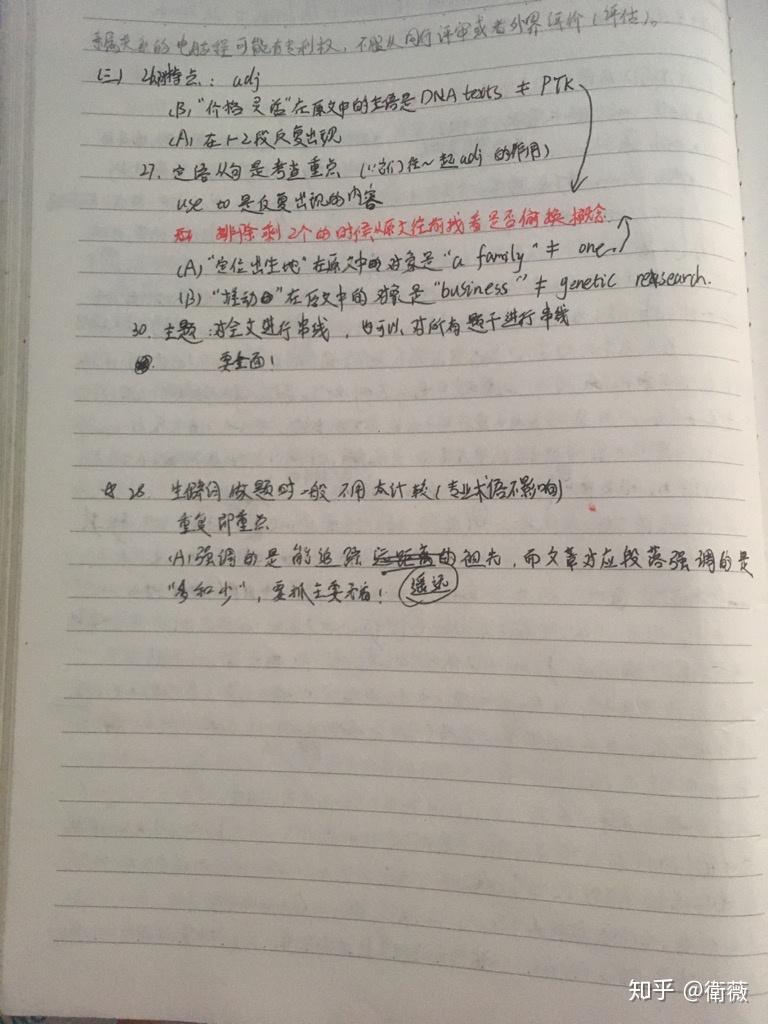 亲属关系的电脑程可能有专利权，不服从同行评审或者外界评价（评估）。
（三） 26. 特点：adj
(B) "价格灵活"在原文中的主语是DNA texts ≠ PTK
(A) 在1-2段反复出现
27. 定语从句是考查重点 (从句往~起adj的作用)
use to 是反复出现的内容
排除剩2个的时候原文往前找看是否偷换概念
(A) "定位出生地"在原文中的对象是"a family" ≠ one
(B) "推动"在原文中的对象是"business" ≠ genetic research.
30. 主题：对全文进行串线，也可以对所有题干进行串线
要全面！
☆ 28. 生僻词做题时一般不用太计较(专业术语不影响)
重复即重点
(A) 强调的是能追踪远距离的祖先，而文章对应段落强调的是
"多和少"，要抓主要矛盾！ 遥远
知乎 @衛薇